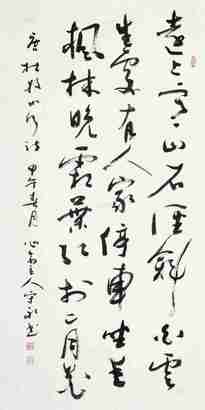 遠上寒山石徑斜白雲
生處有人家停車坐愛
楓林晚霜葉紅於二月花
唐杜牧山行詩 甲午春月 主人 書